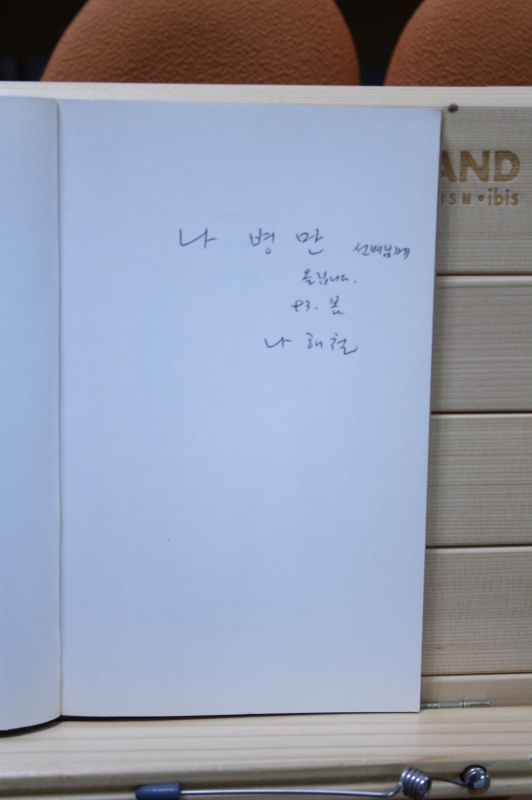 나 병 만 선배님께
올립니다.
93. 봄
나 해철
AND
ISM • ibis